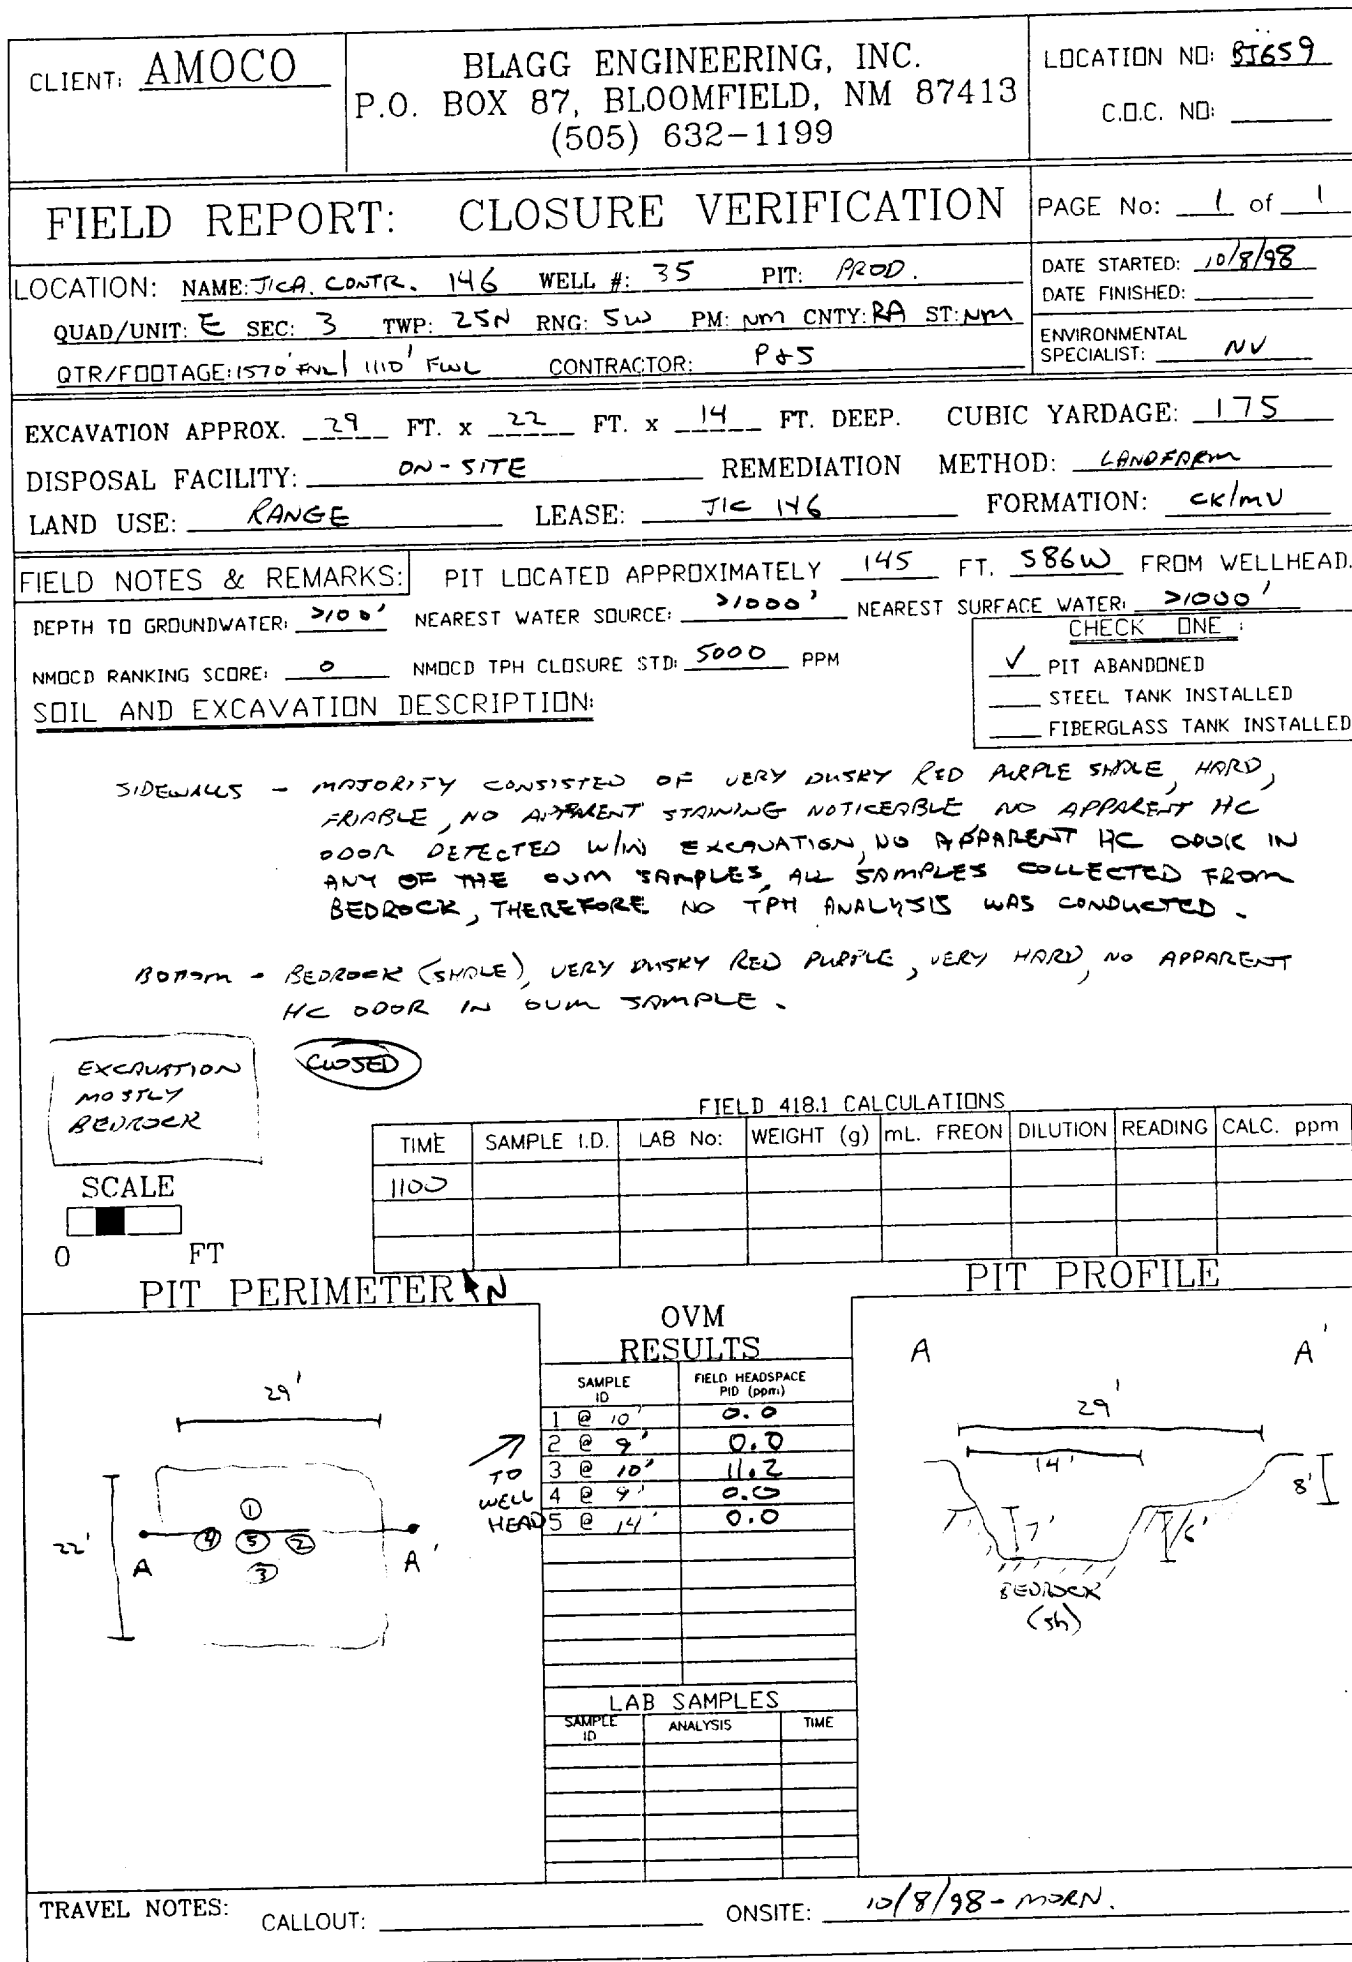 CLIENT: AMOCO
BLAGG ENGINEERING, INC.
P.O. BOX 87, BLOOMFIELD, NM 87413
(505) 632-1199
LOCATION NO: BJ659
C.O.C. NO:
FIELD REPORT: CLOSURE VERIFICATION
PAGE No: 1 of 1
LOCATION: NAME: JICA. CONTR. 146 WELL #: 35 PIT: PROD.
QUAD/UNIT: E SEC: 3 TWP: 25N RNG: 5W PM: NM CNTY: RA ST: NM
QTR/FOOTAGE: 1570' FNL/ 1110' FWL CONTRACTOR: P&S
DATE STARTED: 10/8/98
DATE FINISHED:
ENVIRONMENTAL
SPECIALIST: NV
EXCAVATION APPROX. 29 FT. x 22 FT. x 14 FT. DEEP. CUBIC YARDAGE: 175
DISPOSAL FACILITY: ON-SITE REMEDIATION METHOD: LANDFARM
LAND USE: RANGE LEASE: JIC 146 FORMATION: CK/MV
FIELD NOTES & REMARKS: PIT LOCATED APPROXIMATELY 145 FT. S86W FROM WELLHEAD.
DEPTH TO GROUNDWATER: >100' NEAREST WATER SOURCE: >1000' NEAREST SURFACE WATER: >1000'
NMOCD RANKING SCORE: 0 NMOCD TPH CLOSURE STD: 5000 PPM
CHECK ONE :
✓ PIT ABANDONED
STEEL TANK INSTALLED
FIBERGLASS TANK INSTALLED
SOIL AND EXCAVATION DESCRIPTION:
SIDEWALLS - MAJORITY CONSISTED OF VERY DUSKY RED PURPLE SHALE, HARD,
FRIABLE, NO APPARENT STAINING NOTICEABLE NO APPARENT HC
ODOR DETECTED W/IN EXCAVATION, NO APPARENT HC ODOR IN
ANY OF THE OVM SAMPLES, ALL SAMPLES COLLECTED FROM
BEDROCK, THEREFORE NO TPH ANALYSIS WAS CONDUCTED.
BOTTOM - BEDROCK (SHALE), VERY DUSKY RED PURPLE, VERY HARD, NO APPARENT
HC ODOR IN OVM SAMPLE.
EXCAVATION
MOSTLY
BEDROCK
CLOSED
FIELD 418.1 CALCULATIONS
TIME SAMPLE I.D. LAB No: WEIGHT (g) mL. FREON DILUTION READING CALC. ppm
1100
SCALE
0 FT
PIT PERIMETER N
29'
22'
A A'
1
4 5 2
3
TO
WELL
HEAD
OVM
RESULTS
SAMPLE ID FIELD HEADSPACE PID (ppm)
1 @ 10' 0.0
2 @ 9' 0.0
3 @ 10' 11.2
4 @ 9' 0.0
5 @ 14' 0.0
LAB SAMPLES
SAMPLE ID ANALYSIS TIME
PIT PROFILE
A A'
29'
14'
8'
7' 6'
BEDROCK
(sh)
TRAVEL NOTES: CALLOUT: ONSITE: 10/8/98 - MORN.